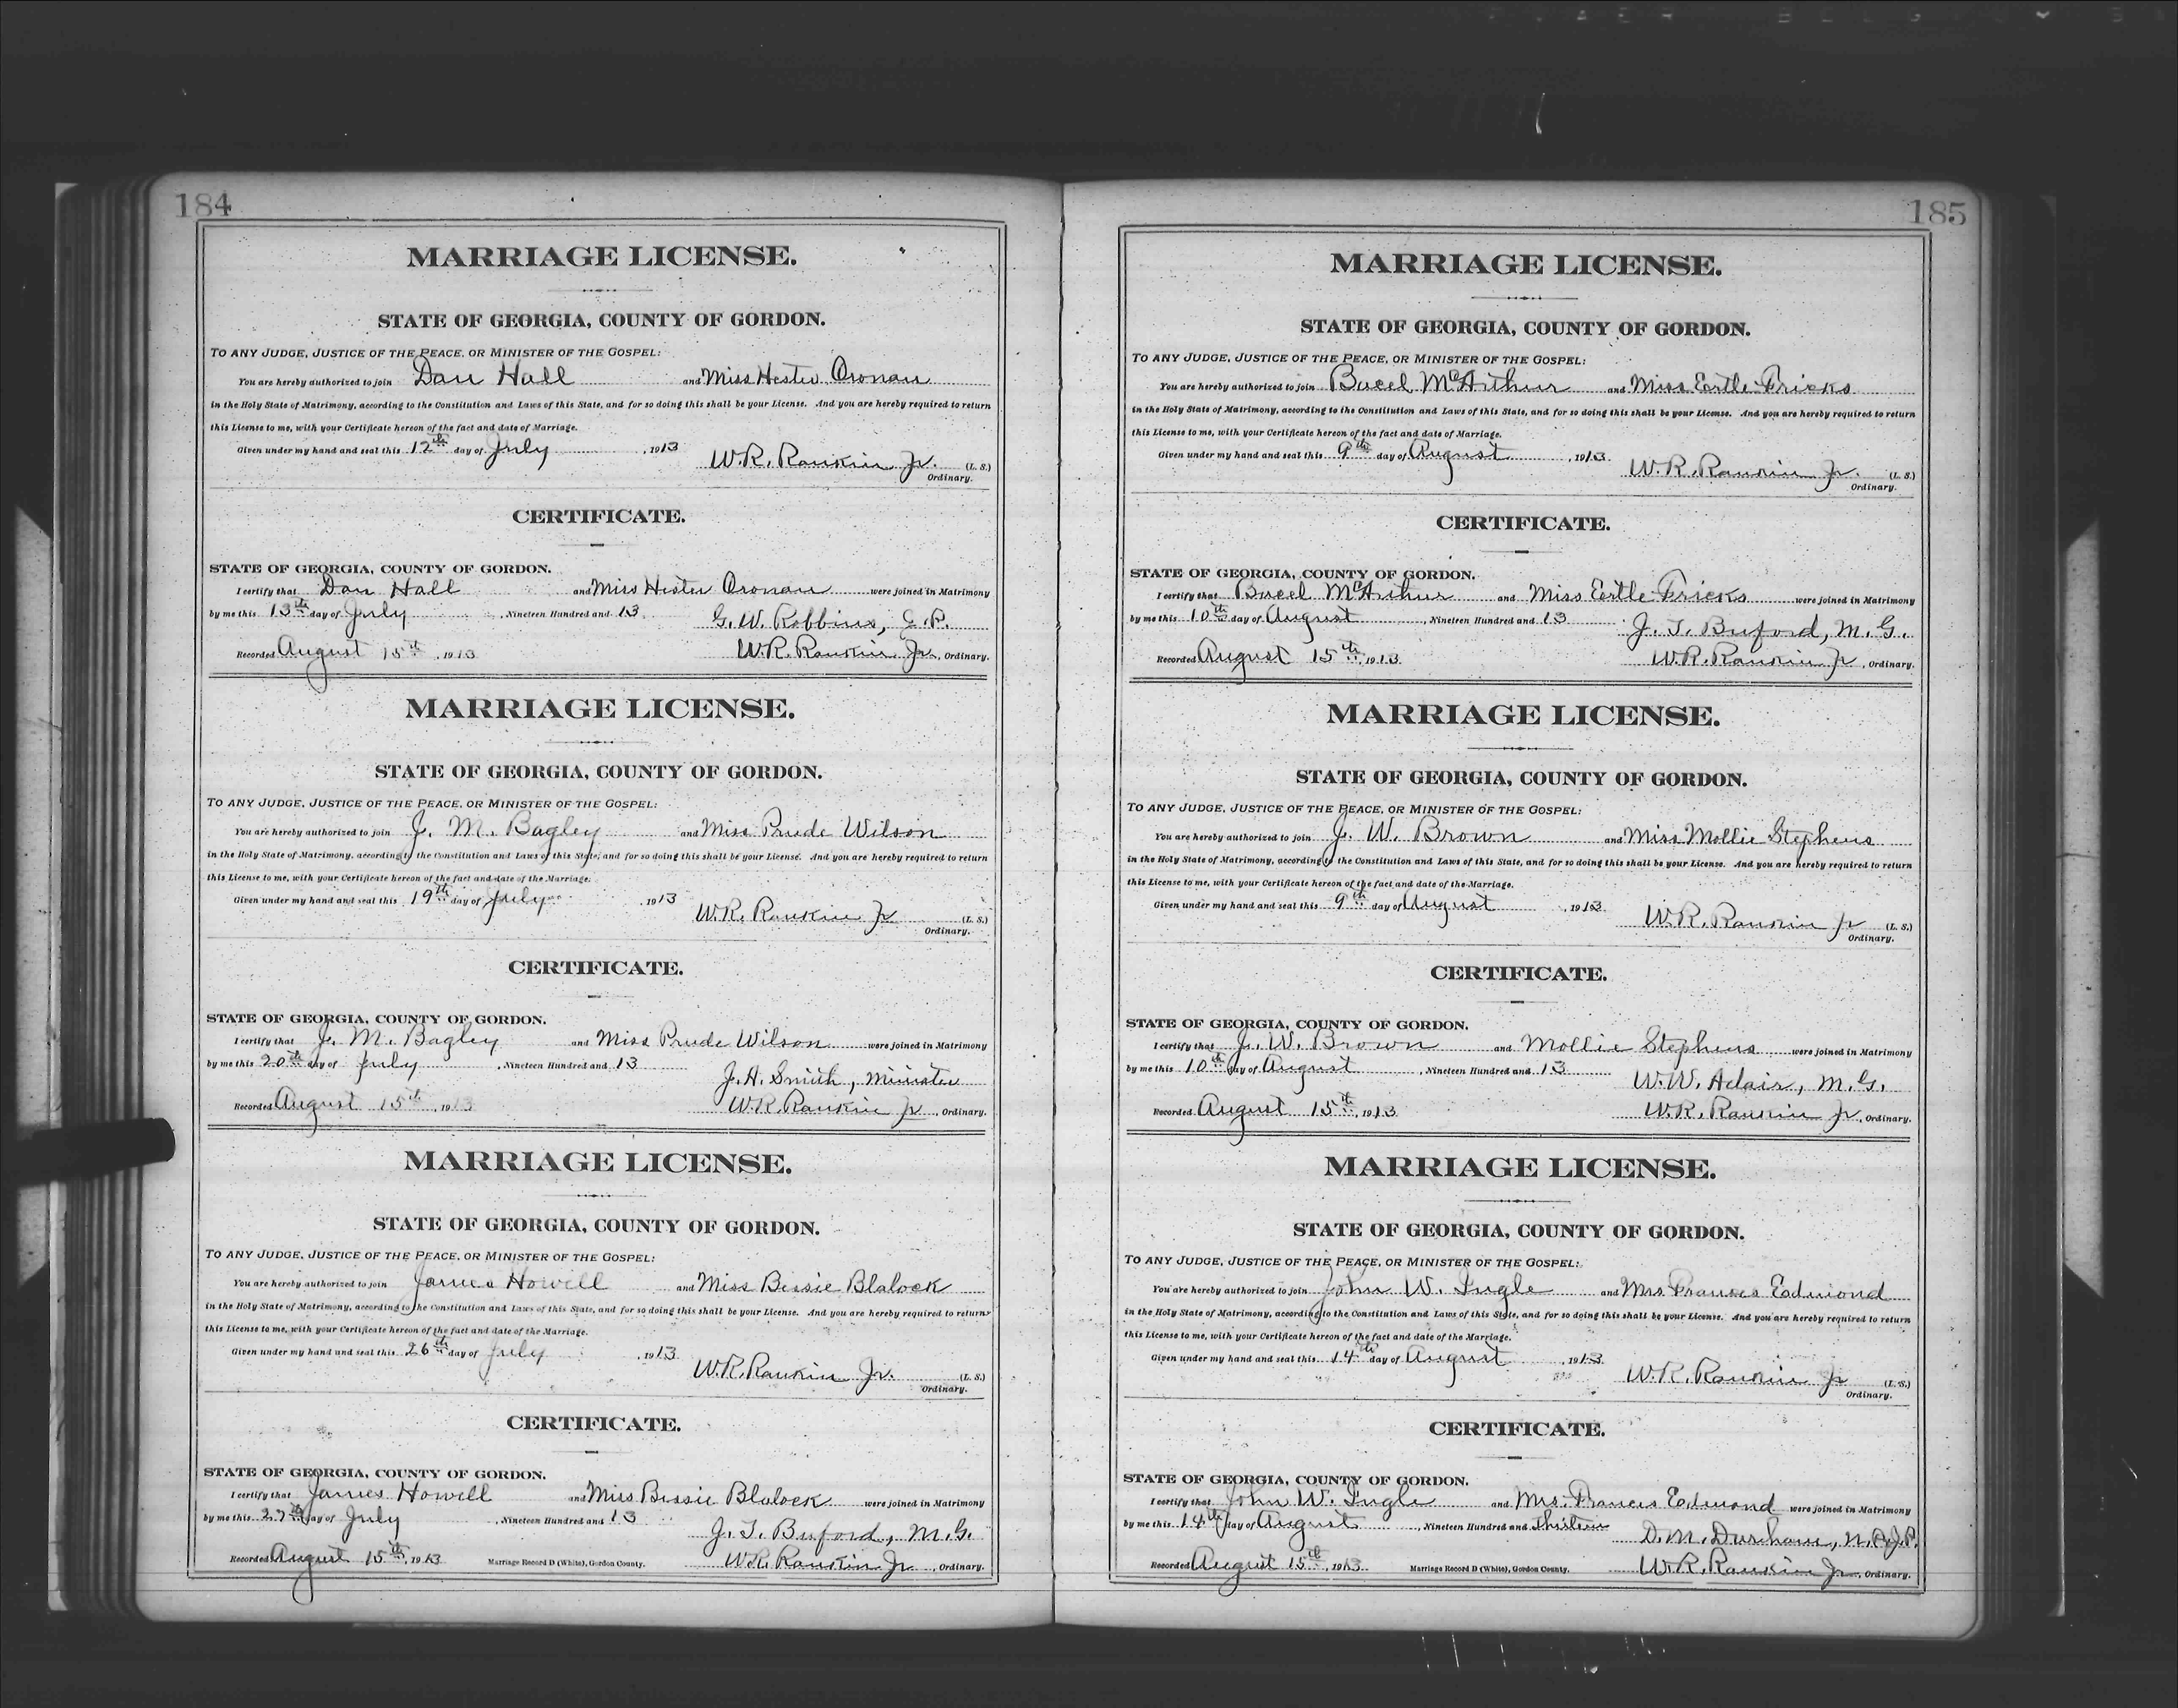 184
MARRIAGE LICENSE.
STATE OF GEORGIA, COUNTY OF GORDON.
TO ANY JUDGE, JUSTICE OF THE PEACE, OR MINISTER OF THE GOSPEL:
You are hereby authorized to join Dan Hall and Miss Hester Cronan
in the Holy State of Matrimony, according to the Constitution and Laws of this State, and for so doing this shall be your License. And you are hereby required to return
this License to me, with your Certificate hereon of the fact and date of Marriage.
Given under my hand and seal this 12th day of July, 1913
W. R. Rankin Jr. (L. S.)
Ordinary.
CERTIFICATE.
STATE OF GEORGIA, COUNTY OF GORDON.
I certify that Dan Hall and Miss Hester Cronan were joined in Matrimony
by me this 13th day of July, Nineteen Hundred and 13.
G. W. Robbins,
Recorded August 15th, 1913 W. R. Rankin Jr., Ordinary.
MARRIAGE LICENSE.
STATE OF GEORGIA, COUNTY OF GORDON.
TO ANY JUDGE, JUSTICE OF THE PEACE, OR MINISTER OF THE GOSPEL:
You are hereby authorized to join J. M. Bagley and Miss Prude Wilson
in the Holy State of Matrimony, according to the Constitution and Laws of this State, and for so doing this shall be your License. And you are hereby required to return
this License to me, with your Certificate hereon of the fact and date of the Marriage.
Given under my hand and seal this 19th day of July 1913
W. R. Rankin Jr (L. S.)
Ordinary.
CERTIFICATE.
STATE OF GEORGIA, COUNTY OF GORDON.
I certify that J. M. Bagley and Miss Prude Wilson were joined in Matrimony
by me this 20th day of July, Nineteen Hundred and 13
J. A. Smith, Minister
Recorded August 15th, 1913 W. R. Rankin Jr, Ordinary.
MARRIAGE LICENSE.
STATE OF GEORGIA, COUNTY OF GORDON.
TO ANY JUDGE, JUSTICE OF THE PEACE, OR MINISTER OF THE GOSPEL:
You are hereby authorized to join James Howell and Miss Bessie Blalock
in the Holy State of Matrimony, according to the Constitution and Laws of this State, and for so doing this shall be your License. And you are hereby required to return
this License to me, with your Certificate hereon of the fact and date of the Marriage.
Given under my hand and seal this 26th day of July, 1913
W. R. Rankin Jr. (L. S.)
Ordinary.
CERTIFICATE.
STATE OF GEORGIA, COUNTY OF GORDON.
I certify that James Howell and Miss Bessie Blalock were joined in Matrimony
by me this 27th day of July, Nineteen Hundred and 13
J. T. Buford, M. G.
Recorded August 15th, 1913 Marriage Record D (White), Gordon County. W. R. Rankin Jr, Ordinary.
185
MARRIAGE LICENSE.
STATE OF GEORGIA, COUNTY OF GORDON.
TO ANY JUDGE, JUSTICE OF THE PEACE, OR MINISTER OF THE GOSPEL:
You are hereby authorized to join Bucel McArthur and Miss Eertle Fricks
in the Holy State of Matrimony, according to the Constitution and Laws of this State, and for so doing this shall be your License. And you are hereby required to return
this License to me, with your Certificate hereon of the fact and date of Marriage.
Given under my hand and seal this 9th day of August, 1913
W. R. Rankin Jr. (L. S.)
Ordinary.
CERTIFICATE.
STATE OF GEORGIA, COUNTY OF GORDON.
I certify that Bucel McArthur and Miss Eertle Fricks were joined in Matrimony
by me this 10th day of August, Nineteen Hundred and 13
J. T. Buford, M. G.
Recorded August 15th, 1913 W. R. Rankin Jr, Ordinary.
MARRIAGE LICENSE.
STATE OF GEORGIA, COUNTY OF GORDON.
TO ANY JUDGE, JUSTICE OF THE PEACE, OR MINISTER OF THE GOSPEL:
You are hereby authorized to join J. W. Brown and Miss Mollie Stephens
in the Holy State of Matrimony, according to the Constitution and Laws of this State, and for so doing this shall be your License. And you are hereby required to return
this License to me, with your Certificate hereon of the fact and date of the Marriage.
Given under my hand and seal this 9th day of August, 1913
W. R. Rankin Jr (L. S.)
Ordinary.
CERTIFICATE.
STATE OF GEORGIA, COUNTY OF GORDON.
I certify that J. W. Brown and Mollie Stephens were joined in Matrimony
by me this 10th day of August, Nineteen Hundred and 13
W. W. Adair, M. G.
Recorded August 15th, 1913 W. R. Rankin Jr, Ordinary.
MARRIAGE LICENSE.
STATE OF GEORGIA, COUNTY OF GORDON.
TO ANY JUDGE, JUSTICE OF THE PEACE, OR MINISTER OF THE GOSPEL:
You are hereby authorized to join John W. Ingle and Mrs Frances Edmond
in the Holy State of Matrimony, according to the Constitution and Laws of this State, and for so doing this shall be your License. And you are hereby required to return
this License to me, with your Certificate hereon of the fact and date of the Marriage.
Given under my hand and seal this 14th day of August, 1913
W. R. Rankin Jr (L. S.)
Ordinary.
CERTIFICATE.
STATE OF GEORGIA, COUNTY OF GORDON.
I certify that John W. Ingle and Mrs. Frances Edmond were joined in Matrimony
by me this 14th day of August, Nineteen Hundred and Thirteen
D. M. Durham, N. P. J. P.
Recorded August 15th, 1913 Marriage Record D (White), Gordon County. W. R. Rankin Jr, Ordinary.